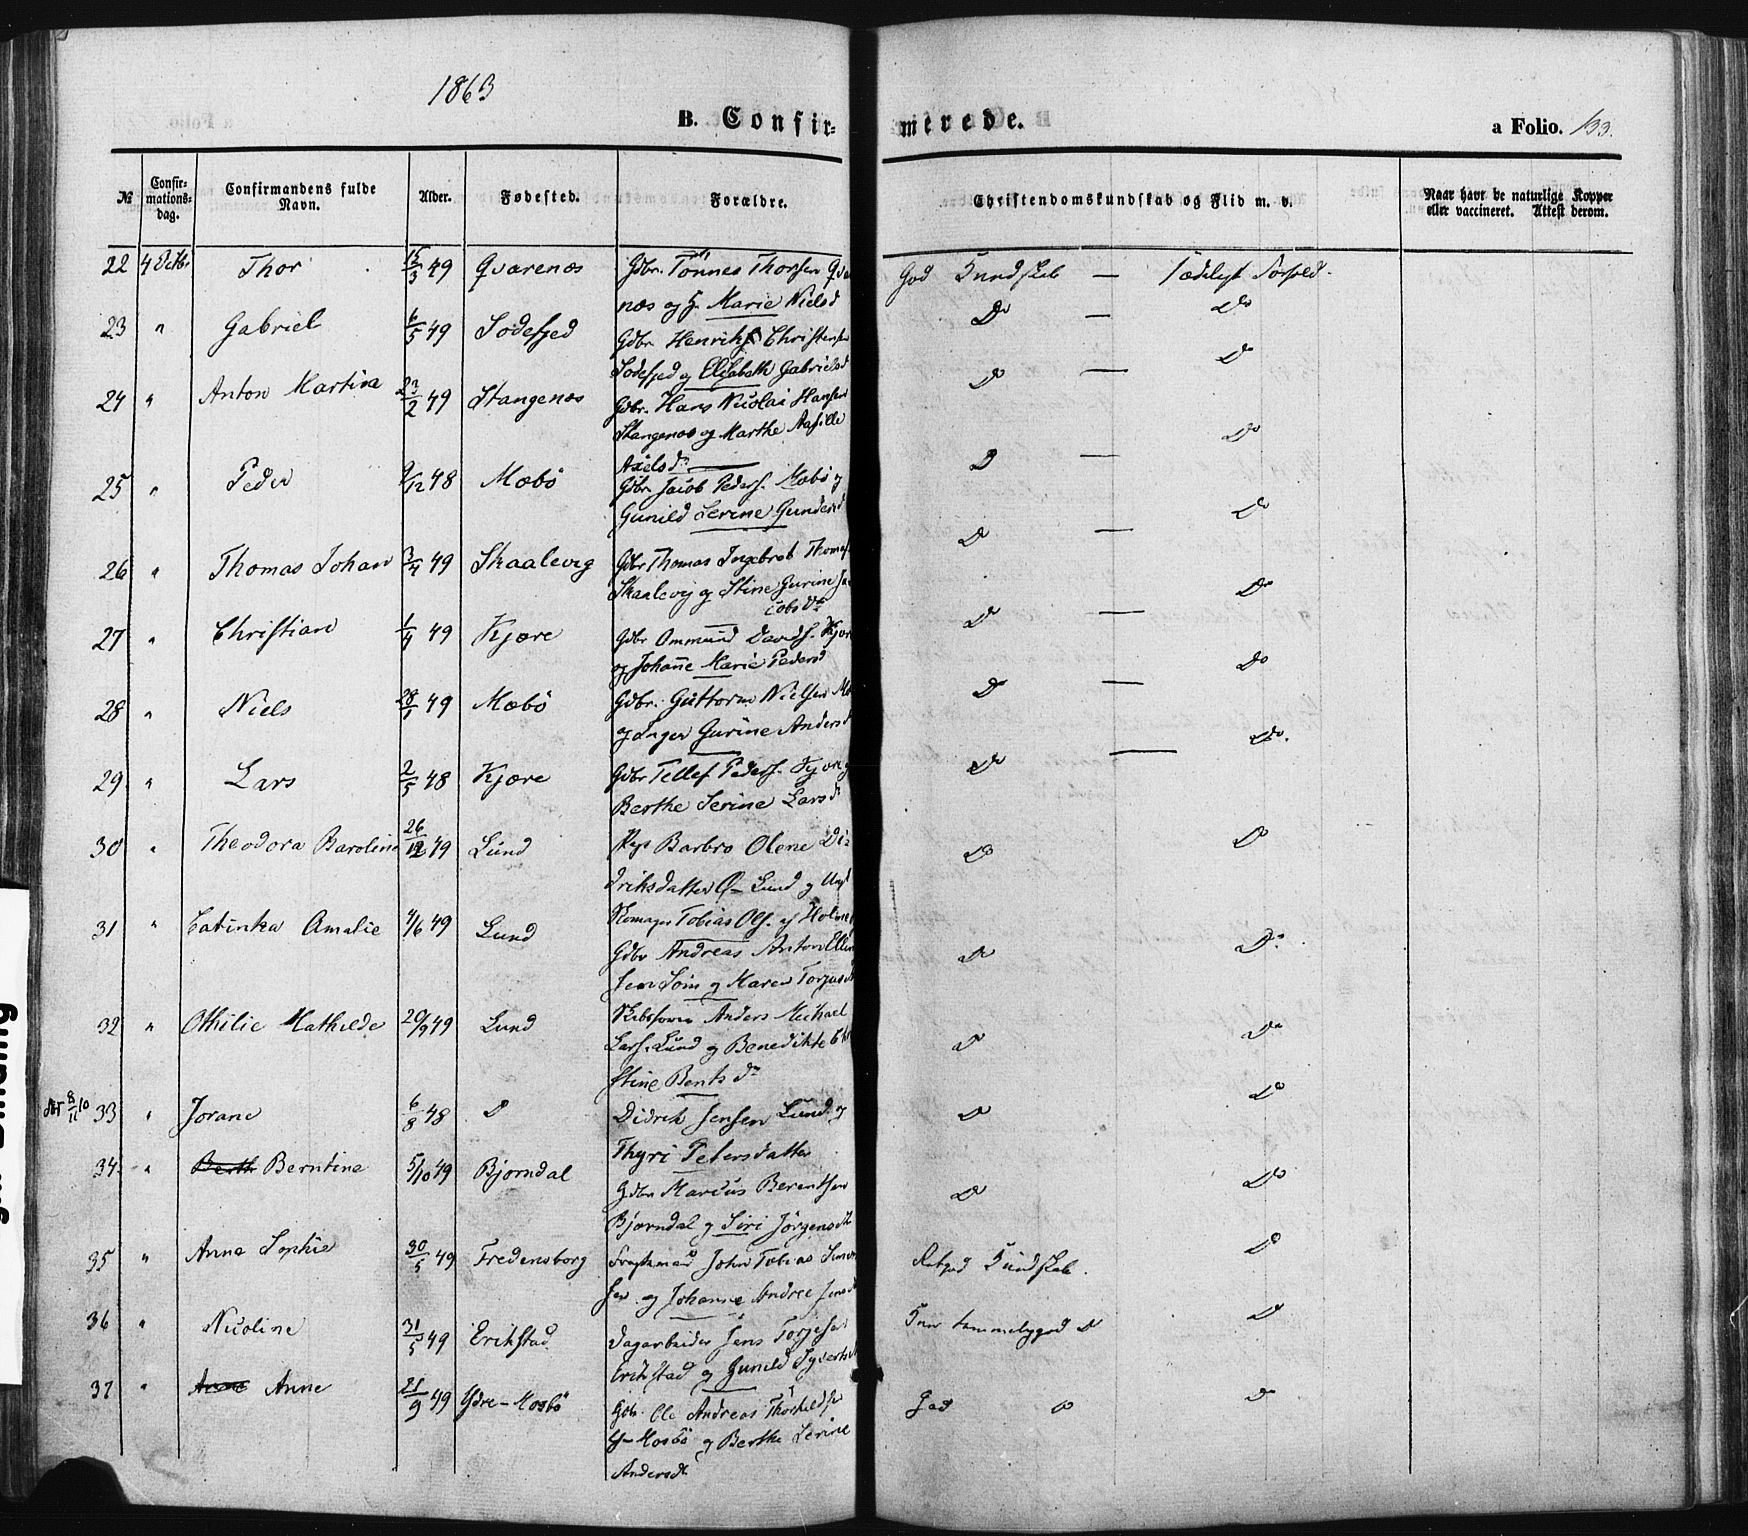 1863
B. Confir=
merede.
a Folio. 133.
№
Confir-
mations-
dag.
Confirmandens fulde
Navn.
Alder.
Fødested.
Forældre.
Christendomskundskab og Flid m. v.
Naar havt de naturlige Kopper
eller vaccineret. Attest derom.
22 4 Octbr Thor 15/3 49 Qvarenæs Gdbr. Tönnes Thorsen Qva
næs og H. Marie Nielsd
God Kundskab — Sædeligt Forhold.
23 " Gabriel 6/5 49 Sodefjed Gdbr. Henrik Christensen
Sodefjed og Elisabeth Gabrielsd
Do — Do
24 " Anton Martin 22/2 49 Stangenæs Gdbr. Hans Nicolai Hansen
Stangenæs og Marthe Aasille
Axelsdr
Do — Do
25 " Peder 9/12 48 Mæbö Gdbr. Jacob Peders. Mæbö og
Gunild Serine Gundersd
D — Do
26 " Thomas Johan 3/4 49 Skaalevig Gdbr Thomas Ingebret Thomas
Skaalevig og Stine Gurine Ja
cobsdr
D — Do
27 " Christian 1/4 49 Kjære Gdbr Ommund Davids. Kjær
og Johanne Marie Pedersd
Do — Do
28 " Niels 28/1 49 Mæbö Gdbr. Guttorm Nielsen Mæ
og Inger Gurine Andersd
D — Do
29 " Lars 2/5 48 Kjære Gdbr Tellef Peders. Kjære og
Berthe Serine Larsd
Do — Do.
30 " Theodora Baroline 26/12 49 Lund Pige Barbro Olene Di=
driksdatter Ø– Lund og Ungk
Do Do
31 " Catinka Amalie 4/6 49 Lund Skomager Tobias Ols. af Holme
Gdbr Andreas Anton Ellin
sen Sõm og Maren Torjusdt
Do Do.
32 " Othilie Mathilde 20/9 49 Lund Anders Michael
Lars. Lund og Benedikte Chr
stine Bentsdr
D Do
Att 8/11 10 33 " Jorane 6/8 48 D Didrik Jensen Lund og
Thyri Petersdatter
Do Do
34 " Berth Berntine 5/10 49 Bjorndal Gdbr Marcus Berentsen
Bjørndal og Siri Jörgensdt
Do Do
35 " Anne Sophie 30/5 49 Fredensborg John Tobias Simon
sen og Johanne Andree Jensd
Retgod Kundskab. Do
36 " Nicoline 31/5 49 Erikstad Dagarbeider Jens Torjesen
Erikstad og Gunild Syvertsd
Kun temmeliggod D Do
37 " Anne Anne 21/9 49 Ydre–Mosbö Gdb. Ole Andreas Thorkilds.
Y–Mosbö og Berthe Serine
Andersdt
God D Do